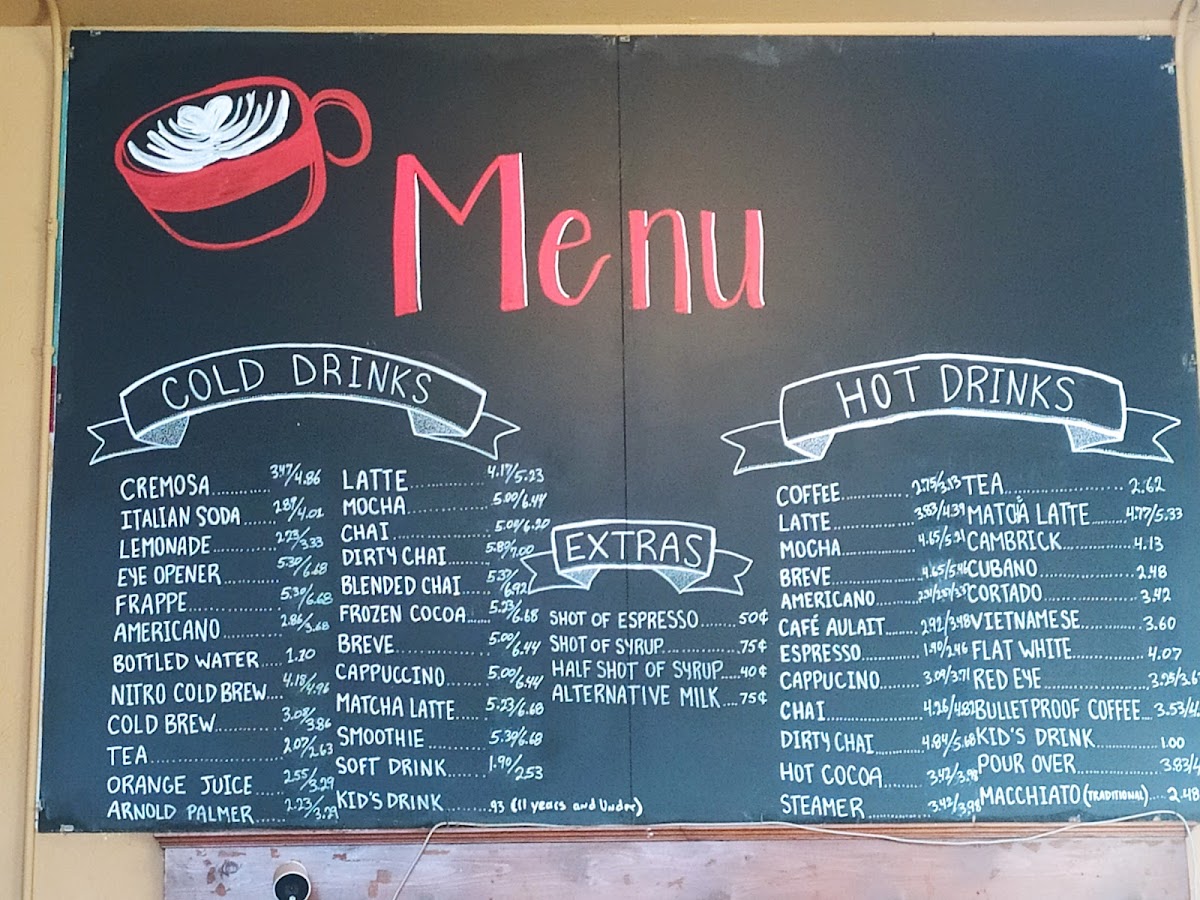 Menu
COLD DRINKS
CREMOSA............ 3.47/4.86
ITALIAN SODA....... 2.89/4.01
LEMONADE............ 2.23/3.33
EYE OPENER............ 5.30/6.68
FRAPPE................ 5.30/6.68
AMERICANO............ 2.86/3.68
BOTTLED WATER.... 1.20
NITRO COLD BREW.... 4.18/4.96
COLD BREW............ 3.08/3.86
TEA.................... 2.07/2.63
ORANGE JUICE........ 2.55/3.29
ARNOLD PALMER...... 2.23/3.29
LATTE................ 4.17/5.23
MOCHA................ 5.00/6.44
CHAI.................. 5.00/6.20
DIRTY CHAI........ 5.80/7.00
BLENDED CHAI..... 5.37/6.92
FROZEN COCOA...... 5.23/6.68
BREVE................ 5.00/6.44
CAPPUCCINO........ 5.00/6.44
MATCHA LATTE..... 5.23/6.68
SMOOTHIE........... 5.39/6.68
SOFT DRINK...... 1.90/2.53
KID'S DRINK........ .93 (11 years and under)
EXTRAS
SHOT OF ESPRESSO....... 50¢
SHOT OF SYRUP.............. 75¢
HALF SHOT OF SYRUP..... 40¢
ALTERNATIVE MILK.... 75¢
HOT DRINKS
COFFEE............ 2.75/3.13
LATTE............. 3.83/4.39
MOCHA............. 4.65/5.21
BREVE............. 4.65/5.46
AMERICANO.........
CAFÉ AULAIT........ 2.92/3.48
ESPRESSO........... 1.90/2.46
CAPPUCINO......... 3.09/3.71
CHAI................ 4.26/4.82
DIRTY CHAI......... 4.84/5.68
HOT COCOA........ 3.42/3.98
STEAMER........... 3.42/3.98
TEA.................... 2.62
MATCHA LATTE........ 4.77/5.33
CAMBRICK............ 4.13
CUBANO............... 2.48
CORTADO............. 3.42
VIETNAMESE......... 3.60
FLAT WHITE........... 4.07
RED EYE.................
BULLETPROOF COFFEE...
KID'S DRINK............ 1.00
POUR OVER............
MACCHIATO (TRADITIONAL).... 2.48